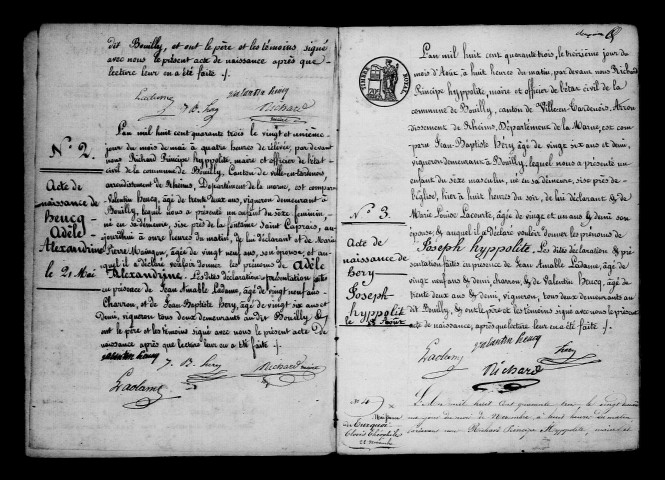 dit Bouilly, et ont le père et les témoins signé
avec nous le présent acte de naissance après que
lecture leur en a été faite ./.
Ladame
valentin heucq
J. B. héry
Richard
maire
N.° 2.
Acte de
naissance de
Heucq
Adèle
Alexandrine
le 21 Mai
L'an mil huit cent quarante trois le vingt unième
jour du mois de mai à quatre heures de relevée, par devant
nous Richard Principe hyppolite, maire et officier de l'état
civil de la commune de Bouilly, Canton de ville-en-tardenois,
arrondissement de Rheims, Département de la marne, est comparu
Valentin Heucq, âgé de trente deux ans, vigneron demeurant à
Bouilly, lequel nous a présenté un enfant du sexe féminin,
né en sa demeure, sise près de la fontaine Saint Caprais, au-
jourd'hui à onze heures du matin, de lui déclarant et de Marie
Pierre Maingon, âgée de vingt neuf ans, son épouse, et au-
quel il a déclaré vouloir donner les prénoms de Adèle
Alexandrine. Lesdites déclaration & présentation faites
en présence de Jean Aimable Ladame, âgé de vingt neuf ans
Charron, et de Jean Baptiste héry, âgé de vingt six ans et
Demi, vigneron, tous deux demeurants audit Bouilly &
ont le père et les témoins signé avec nous le présent acte de
naissance après que lecture leur en a été faite ./.
valentin heucq
J. B. héry
Richard maire
Ladame
TIMBRE ROYAL
L'an mil huit cent quarante trois, le treizième jour du
mois d'Août, à huit heures du matin, par devant nous Richard
Principe hyppolite, maire et officier de l'état civil de la
commune de Bouilly, canton de Ville-en-Tardenois, Arron-
dissement de Rheims, Département de la Marne, est com-
paru Jean-Baptiste héry, âgé de vingt six ans & demi,
vigneron demeurant à Bouilly, lequel nous a présenté un
enfant du sexe masculin, né en sa demeure, sise près de
l'église, hier à huit heures du soir, de lui déclarant & de
Marie Louise Lacourte, âgée de vingt et un ans & demi son
épouse, & auquel il a déclaré vouloir donner les prénoms de
Joseph hyppolite. Les dites déclaration &
présentation faites en présence de Jean Aimable Ladame, âgé de
vingt neuf ans & demi, charron, & de Valentin Heucq, âgé de
trente deux ans & demi, vigneron, tous deux demeurants au
dit Bouilly, & ont le père et les témoins signé avec nous le présent
acte de naissance, après que lecture leur en a été faite ./.
N.° 3.
Acte de
naissance de
héry
Joseph
hyppolit
le Août
Ladame
valentin heucq
héry
Richard
N.° 4
L'An mil huit cent quarante trois, le vingt
jour du mois de Novembre, à huit heures du matin,
Richard Principe Hyppolite, maire et